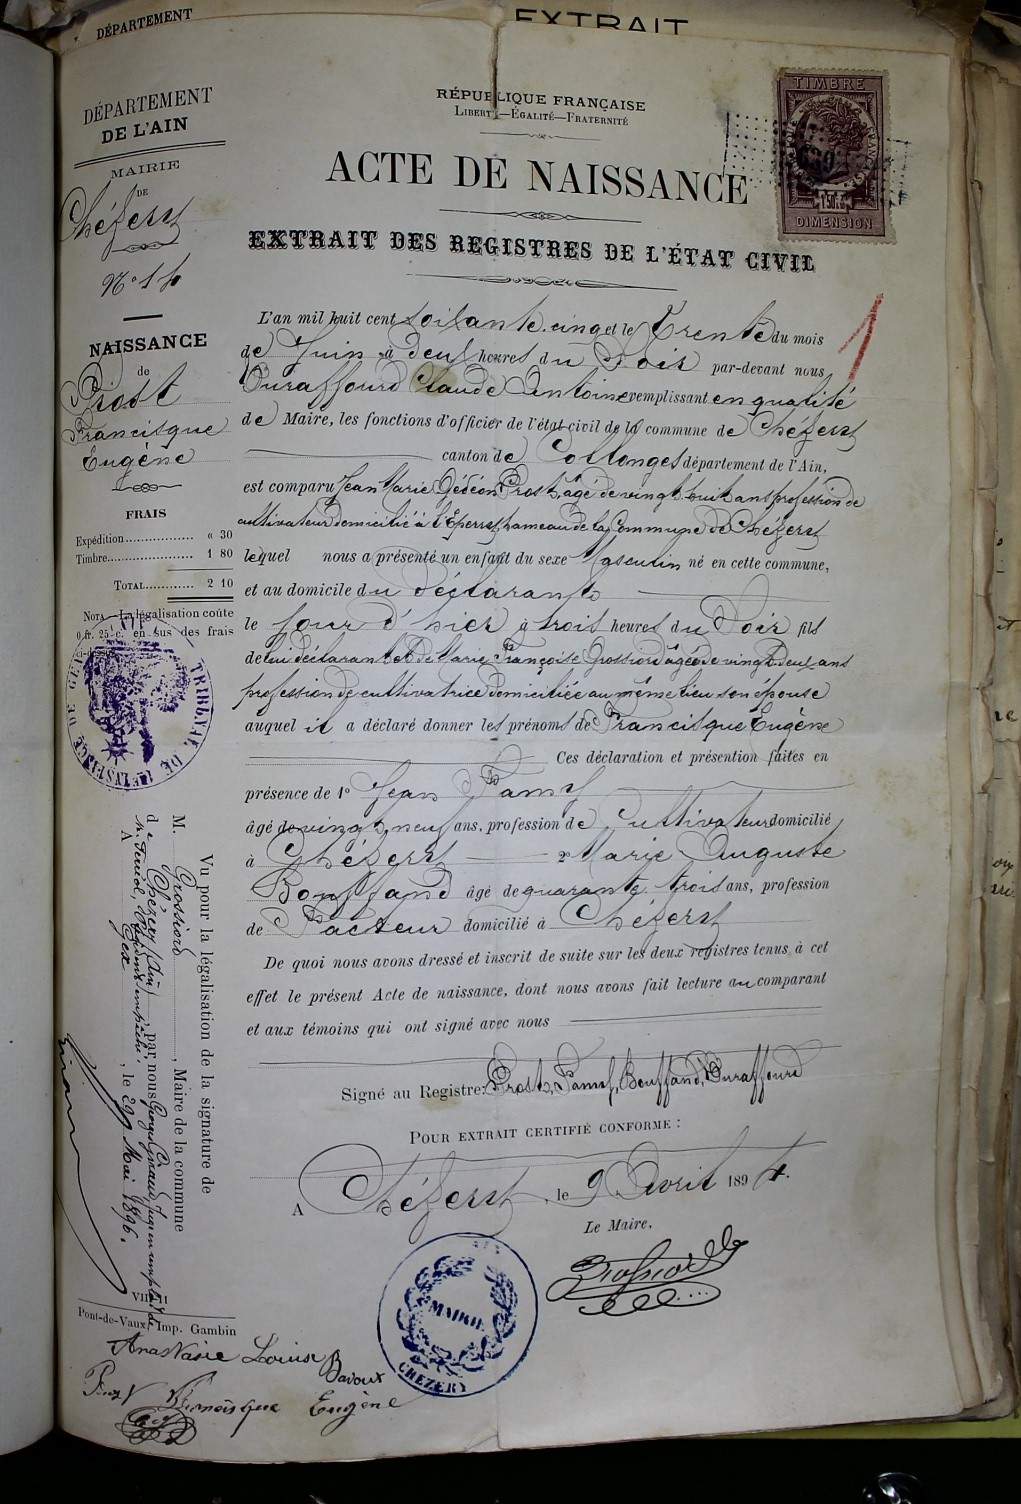 DÉPARTEMENT
EXTRAIT
DÉPARTEMENT
DE L'AIN
MAIRIE
DE
Chézery
NAISSANCE
de
Prost
Francisque
Eugène
FRAIS
Expédition................ « 30
Timbre.................... 1 80
TOTAL............ 2 10
NOTA.—La légalisation coûte
0 fr. 25 c. en sus des frais
ci-dessus
TRIBUNAL DE 1re INSTANCE DE GEX
RÉPUBLIQUE FRANÇAISE
LIBERTÉ—ÉGALITÉ—FRATERNITÉ
ACTE DE NAISSANCE
EXTRAIT DES REGISTRES DE L'ÉTAT CIVIL
TIMBRE
DIMENSION
1
L'an mil huit cent soixante-cinq et le Trente du mois
de Juin à deux heures du Soir par-devant nous
Duraffourd Claude Antoine remplissant en qualité
de Maire, les fonctions d'officier de l'état civil de la commune de Chézery
canton de Collonges département de l'Ain,
est comparu Jean Marie Gédéon Prost, âgé de vingt huit ans profession de
cultivateur domicilié à l'Eperry hameau de la Commune de Chézery
lequel nous a présenté un enfant du sexe Masculin né en cette commune,
et au domicile du déclarant
le jour d'hier à trois heures du Soir fils
de lui déclarant et de Marie Françoise Grossiord âgée de vingt deux ans
profession de cultivatrice domiciliée au même lieu son épouse
auquel il a déclaré donner les prénoms de Francisque Eugène
Ces déclaration et présention faites en
présence de 1° Jean Famy
âgé de vingt neuf ans, profession de Cultivateur domicilié
à Chézery 2° Marie Auguste
Bouffand âgé de quarante trois ans, profession
de Facteur domicilié à Chézery
De quoi nous avons dressé et inscrit de suite sur les deux registres tenus à cet
effet le présent Acte de naissance, dont nous avons fait lecture au comparant
et aux témoins qui ont signé avec nous
Signé au Registre: Prost, Famy, Bouffand, Duraffourd
POUR EXTRAIT CERTIFIÉ CONFORME :
A Chézery, le 9 Avril 1894.
Le Maire,
Grossiord
MAIRIE
CHÉZERY
Vu pour la légalisation de la signature de
M. Grossiord, Maire de la commune
de Chézery (Ain) par nous
A Gex, le 29 Mai 1896.
Pont-de-Vaux, Imp. Gambin
Anastasie Louise Davoux
Prost Francisque Eugène